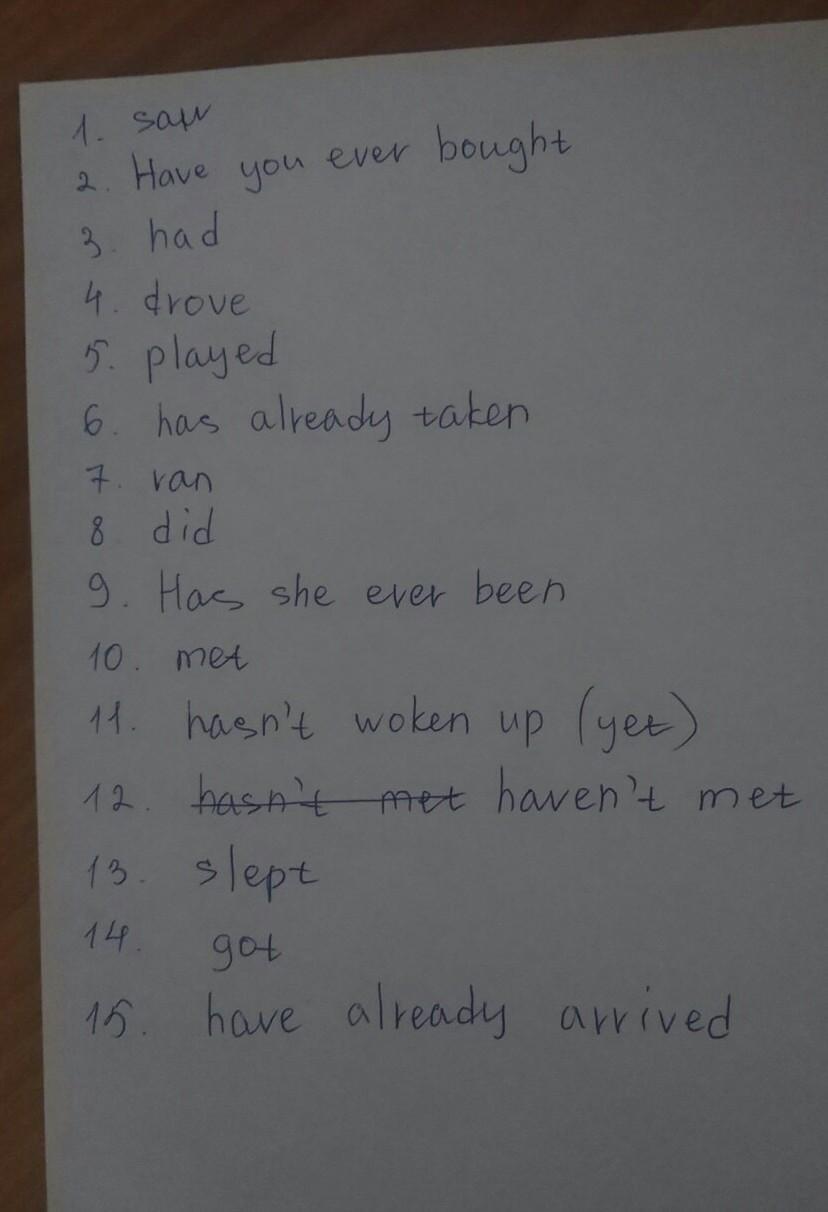 1. saw
2. Have you ever bought
3. had
4. drove
5. played
6. has already taken
7. ran
8 did
9. Has she ever been
10. met
11. hasn't woken up (yet)
12. hasn't met haven't met
13. slept
14. got
15. have already arrived